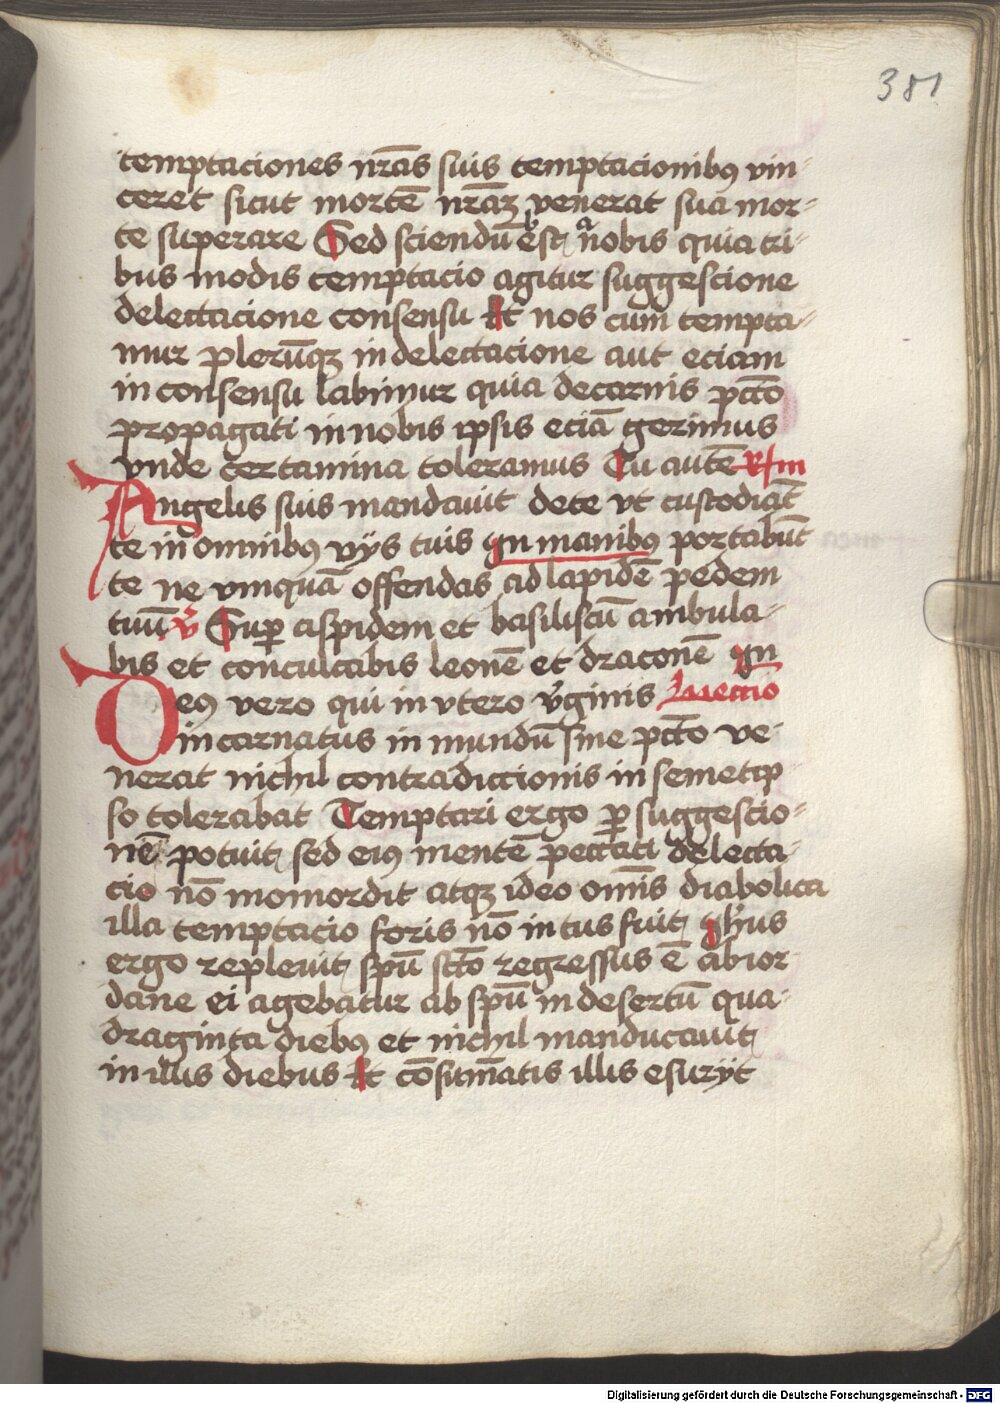 381
temptaciones nr̄as suis temptacionibꝯ vin-
ceret sicut mortē nr̄aꝫ venerat sua mor-
te superare Sed sciendū est nobis quia tri-
bus modis temptacio agitur suggestione
delectacione consensu Et nos cum tempta-
mur plerūqꝫ in delectacione aut eciam
in consensu labimur quia de carnis pctō
propagati in nobis ipsis eciā gerimus
vnde certamina toleramus Tu autē
Angelis suis mandauit de te vt custodiāt
te in omnibꝯ vijs tuis In manibꝯ portabūt
te ne vmquā offendas ad lapidē pedem
tuū v̄ Suꝑ aspidem et basiliscū ambula-
bis et conculcabis leonē et draconē In
Deꝯ vero qui in vtero v̄ginis Leccio
incarnatus in mundū sine pctō ve-
nerat nichil contradiccionis in semetip
so tolerabat Temptari ergo ꝑ suggestio-
nē potuit sed eiꝯ mentē peccati delecta-
cio nō momordit atqꝫ ideo om̄is diabolica
illa temptacio foris nō intus fuit Ihūs
ergo repleuit spū sctō regressus ē a b ior-
dane et agebatur ab spū in desertū qua-
draginta diebꝯ et nichil manducauit
in illis diebus Et cōsum̄atis illis esurijt
Digitalisierung gefördert durch die Deutsche Forschungsgemeinschaft - DFG